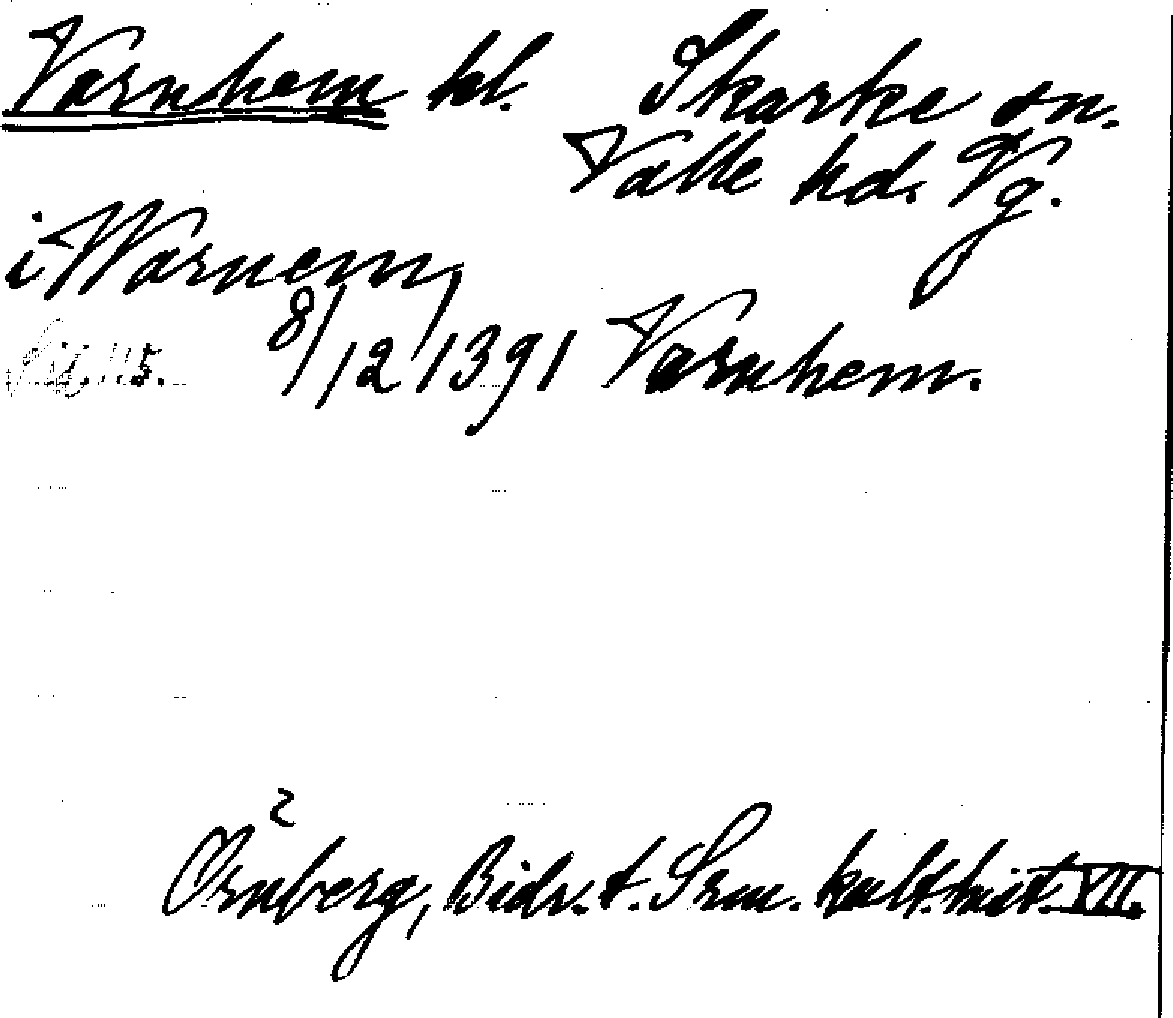 Varnhem kl. Skarke sn.
Valle hd. Vg.
i Warnem,
8/12 1391 Varnhem.
Örnberg, Bidr. t. Srm. kult.hist. VII.